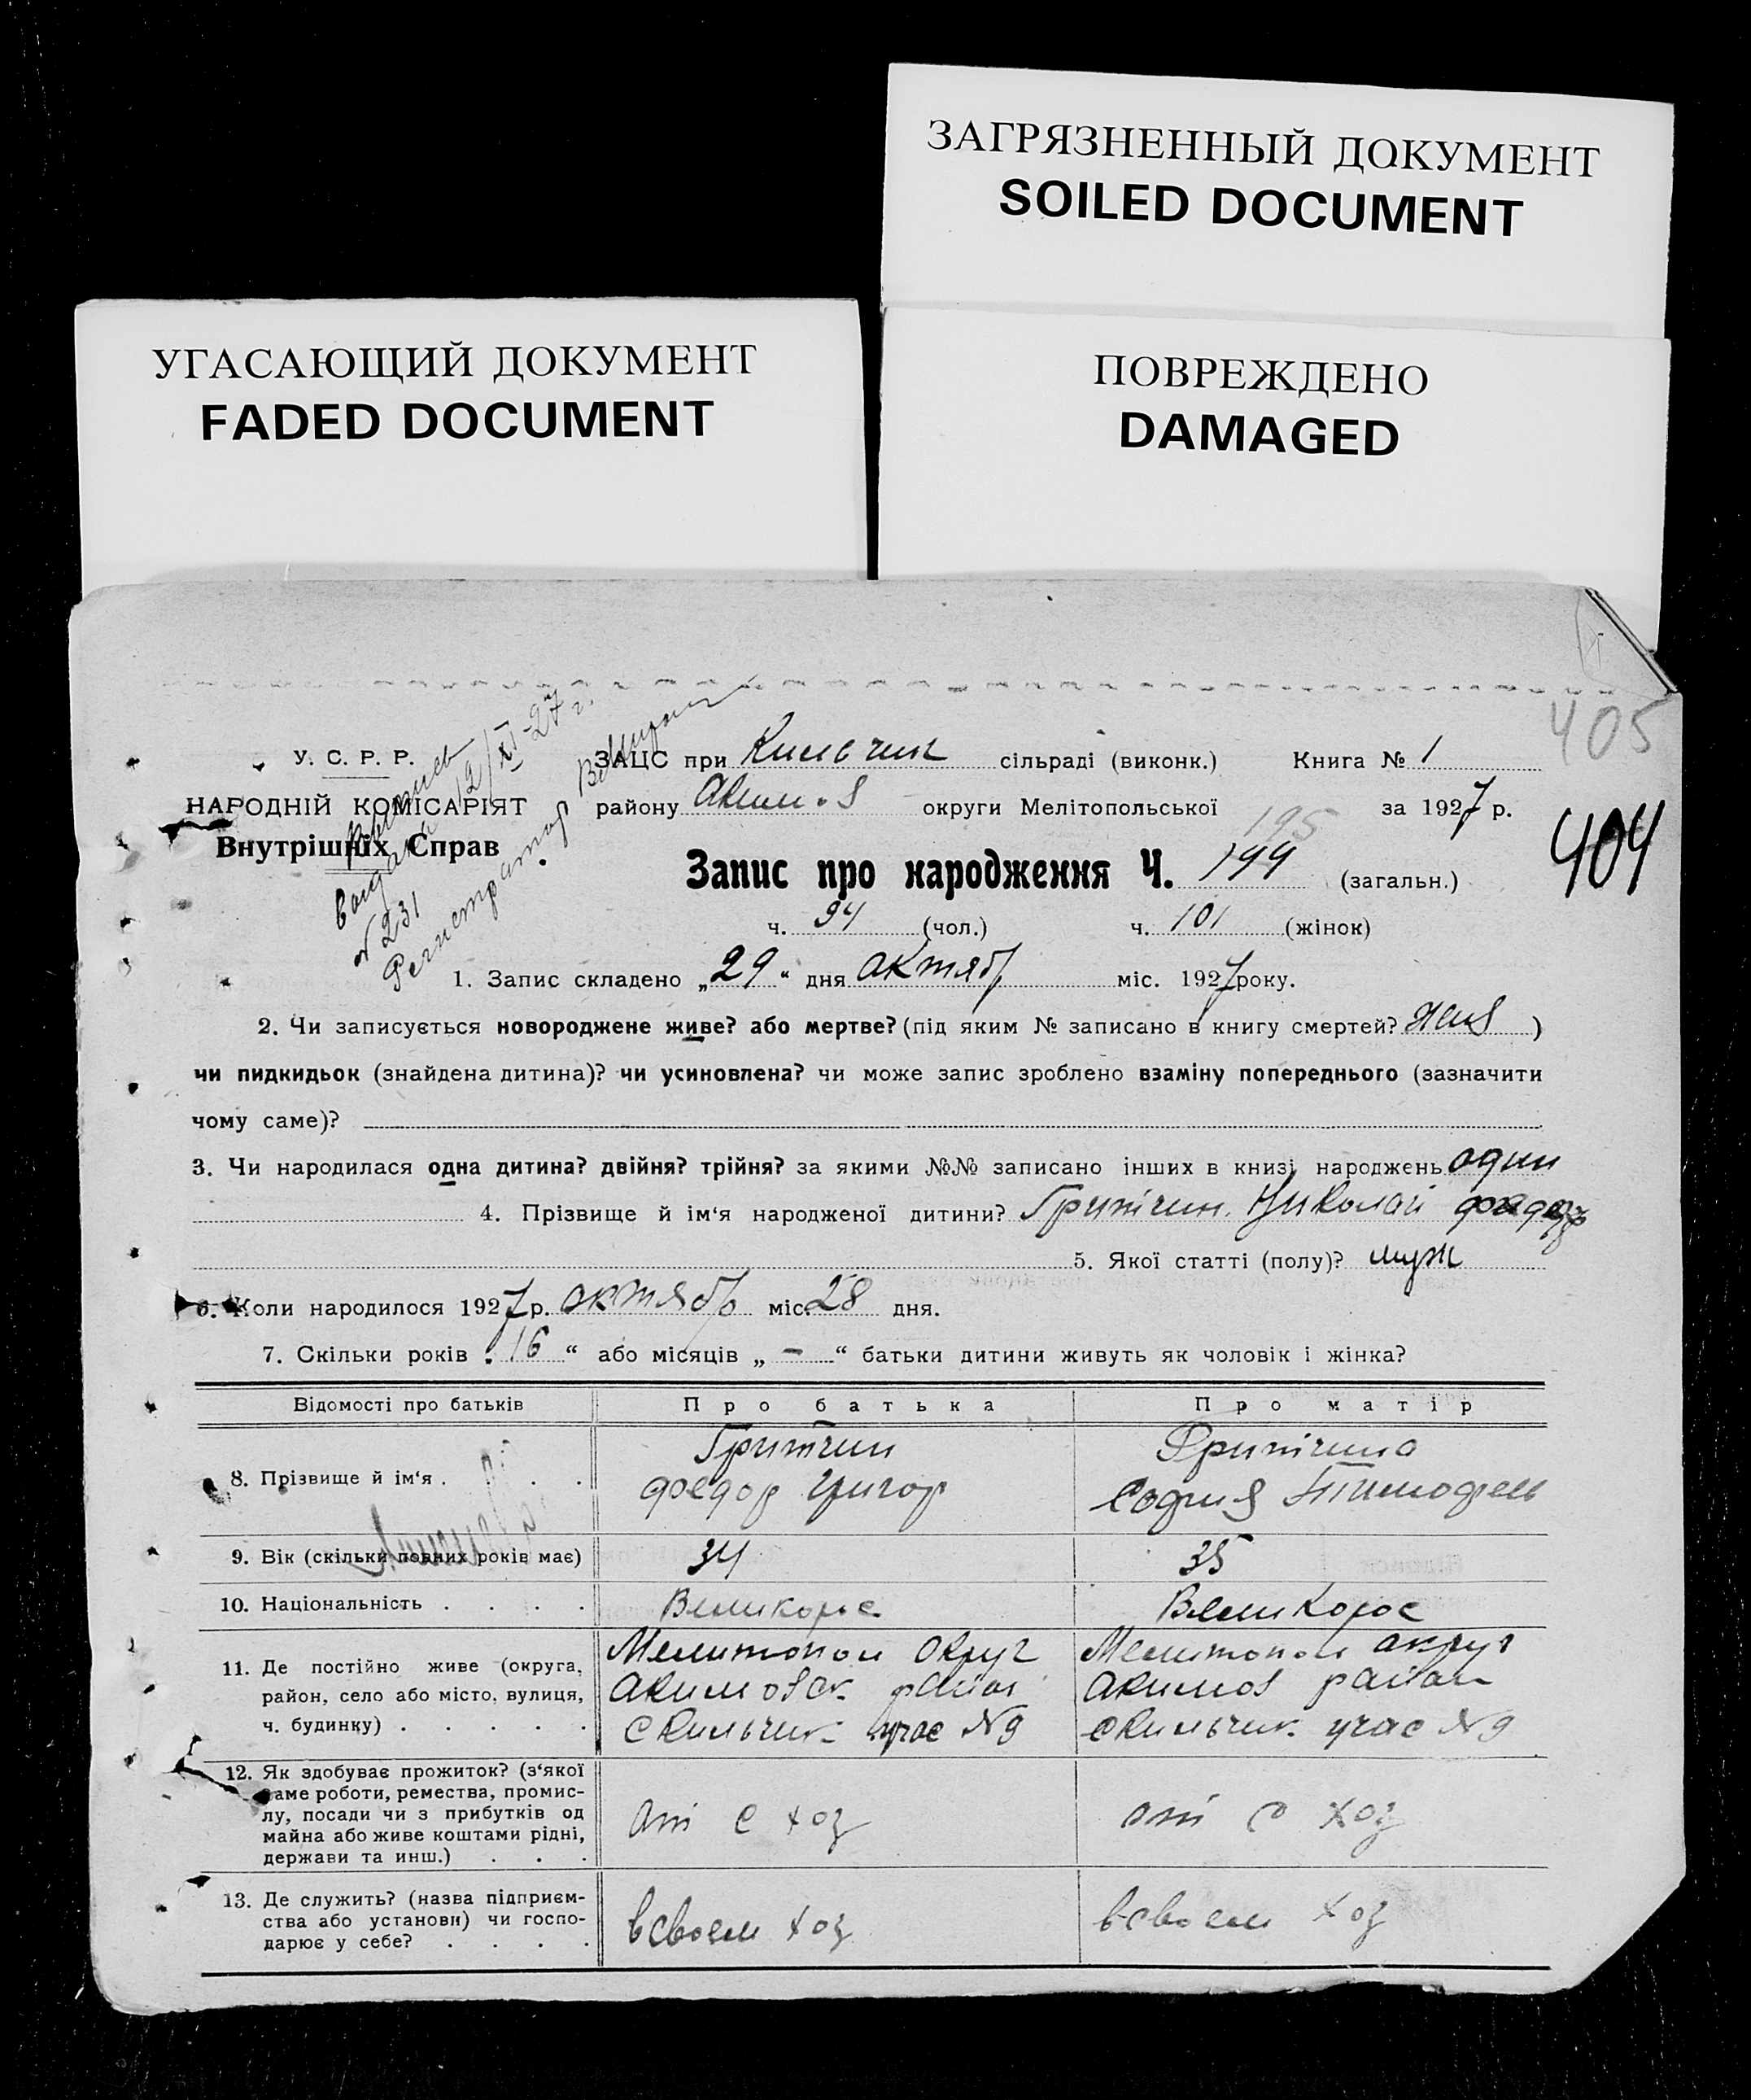 ЗАГРЯЗНЕННЫЙ ДОКУМЕНТ
SOILED DOCUMENT
УГАСАЮЩИЙ ДОКУМЕНТ
FADED DOCUMENT
ПОВРЕЖДЕНО
DAMAGED
405
У. С. Р. Р.
НАРОДНІЙ КОМІСАРІЯТ
Внутрішніх Справ
12/XI-27 г.
№ 231
Регистратор
ЗАЦС при Кильчик сільраді (виконк.) Книга № 1
району Аким ов округи Мелітопольської за 1927 р.
195
404
Запис про народження Ч. 199 (загальн.)
ч. 94 (чол.) ч. 101 (жінок)
1. Запис складено „29“ дня октяб міс. 1927 року.
2. Чи записується новороджене живе? або мертве? (під яким № записано в книгу смертей? )
чи пидкидьок (знайдена дитина)? чи усиновлена? чи може запис зроблено взаміну попереднього (зазначити
чому саме)?
3. Чи народилася одна дитина? двійня? трійня? за якими №№ записано інших в книзі народжень один
4. Прізвище й ім'я народженої дитини? Гритчин Николай Федор
5. Якої статті (полу)? муж
6. Коли народилося 1927 р. октяб міс. 28 дня.
7. Скільки років „16“ або місяців „ — “ батьки дитини живуть як чоловік і жінка?
Відомості про батьків Про батька Про матір
8. Прізвище й ім'я . . . Гритчин Гритчина
Федор Григор София Тимофеев
9. Вік (скільки повних років має) 34 35
10. Національність . . . . Великорос Великорос
11. Де постійно живе (округа, Мелитопол округ Мелитопол округ
район, село або місто, вулиця, Акимовск район Акимов район
ч. будинку) . . . . . с Кильчик учас № 9 с Кильчик учас № 9
12. Як здобуває прожиток? (з'якої
саме роботи, ремества, промис-
лу, посади чи з прибутків од от с хоз от с хоз
майна або живе коштами рідні,
держави та инш.) . . .
13. Де служить? (назва підприєм-
ства або установи) чи госпо- в своем хоз в своем хоз
дарює у себе? . . . .